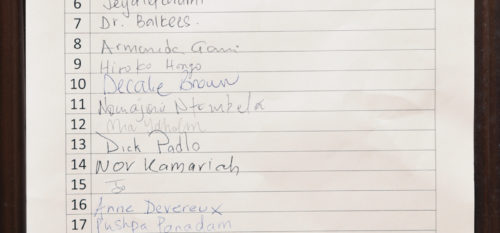 6
7 Dr. Balkees.
8 Armanda Gani
9 Hiroko Hongo
10 Decalie Brown
11 Ntombela
12
13 Dick Padlo
14 Nor Kamariah
15 Jo
16 Anne Devereux
17 Pushpa Panadam